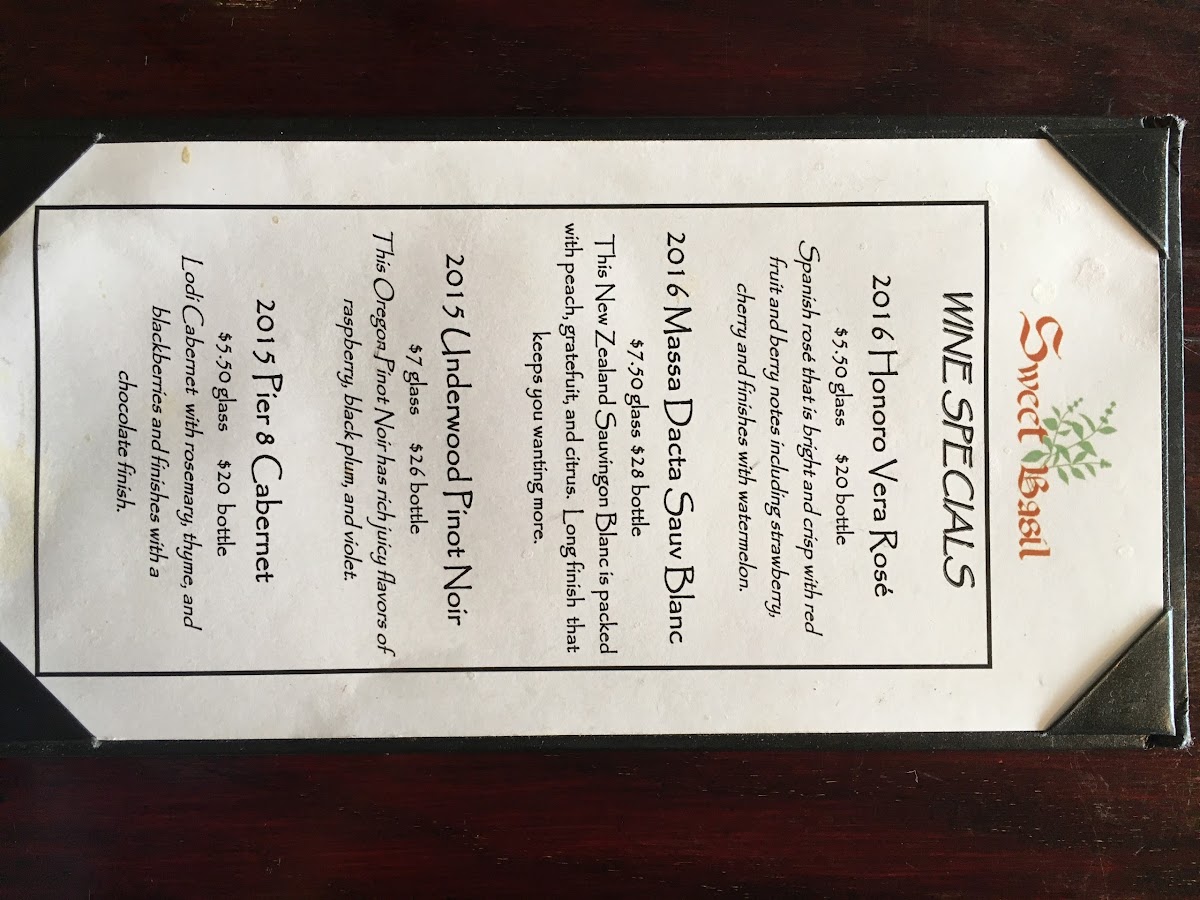 Sweet Basil
WINE SPECIALS
2016 Honoro Vera Rosé
$5.50 glass $20 bottle
Spanish rosé that is bright and crisp with red
fruit and berry notes including strawberry,
cherry and finishes with watermelon.
2016 Massa Dacta Sauv Blanc
$7.50 glass $28 bottle
This New Zealand Sauvingon Blanc is packed
with peach, gratefuit, and citrus. Long finish that
keeps you wanting more.
2015 Underwood Pinot Noir
$7 glass $26 bottle
This Oregon Pinot Noir has rich juicy flavors of
raspberry, black plum, and violet.
2015 Pier 8 Cabernet
$5.50 glass $20 bottle
Lodi Cabernet with rosemary, thyme, and
blackberries and finishes with a
chocolate finish.